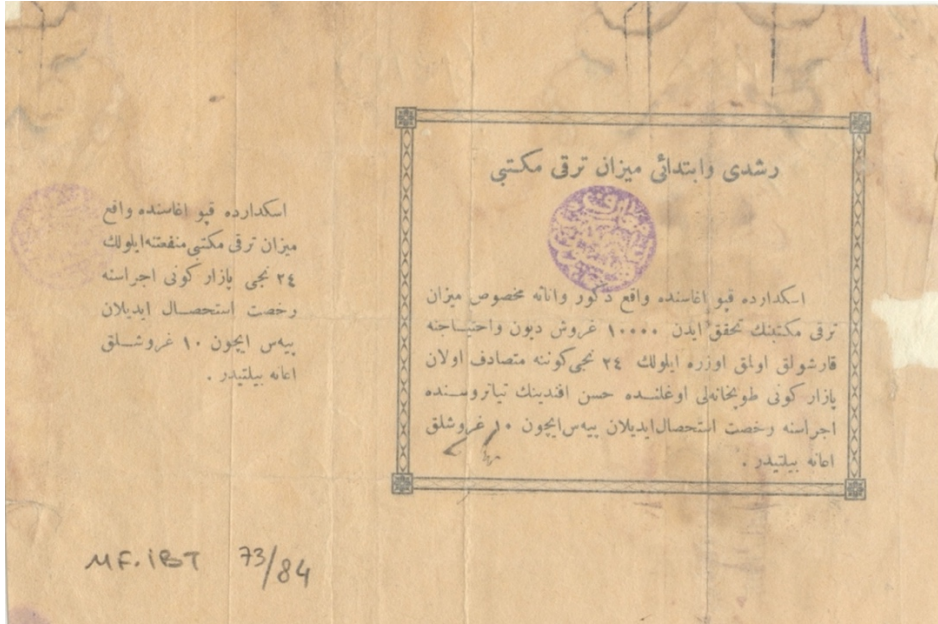 رشدی وابتدائی میزان ترقی مکتبی
اسکدارده قپو اغاسنده واقع ذکور واناثه مخصوص میزان
ترقی مکتبنك تحقق ایدن ١٠٠٠٠ غروش دیون واحتیاجنه
قارشولق اولمق اوزره ایلولك ٢٤ نجی کوننه متصادف اولان
پازار کونی طوبخانه‌لی اوغلنده حسن افندینك تیاتروسنده
اجراسنه رخصت استحصال ایدیلان پیه‌س ایچون ١٠ غروشلق
اعانه بیلتیدر .
اسکدارده قپو اغاسنده واقع
میزان ترقی مکتبی منفعتنه ایلولك
٢٤ نجی پازار کونی اجراسنه
رخصت استحصال ایدیلان
پیه‌س ایچون ١٠ غروشلق
اعانه بیلتیدر .
MF.İBT 73/84